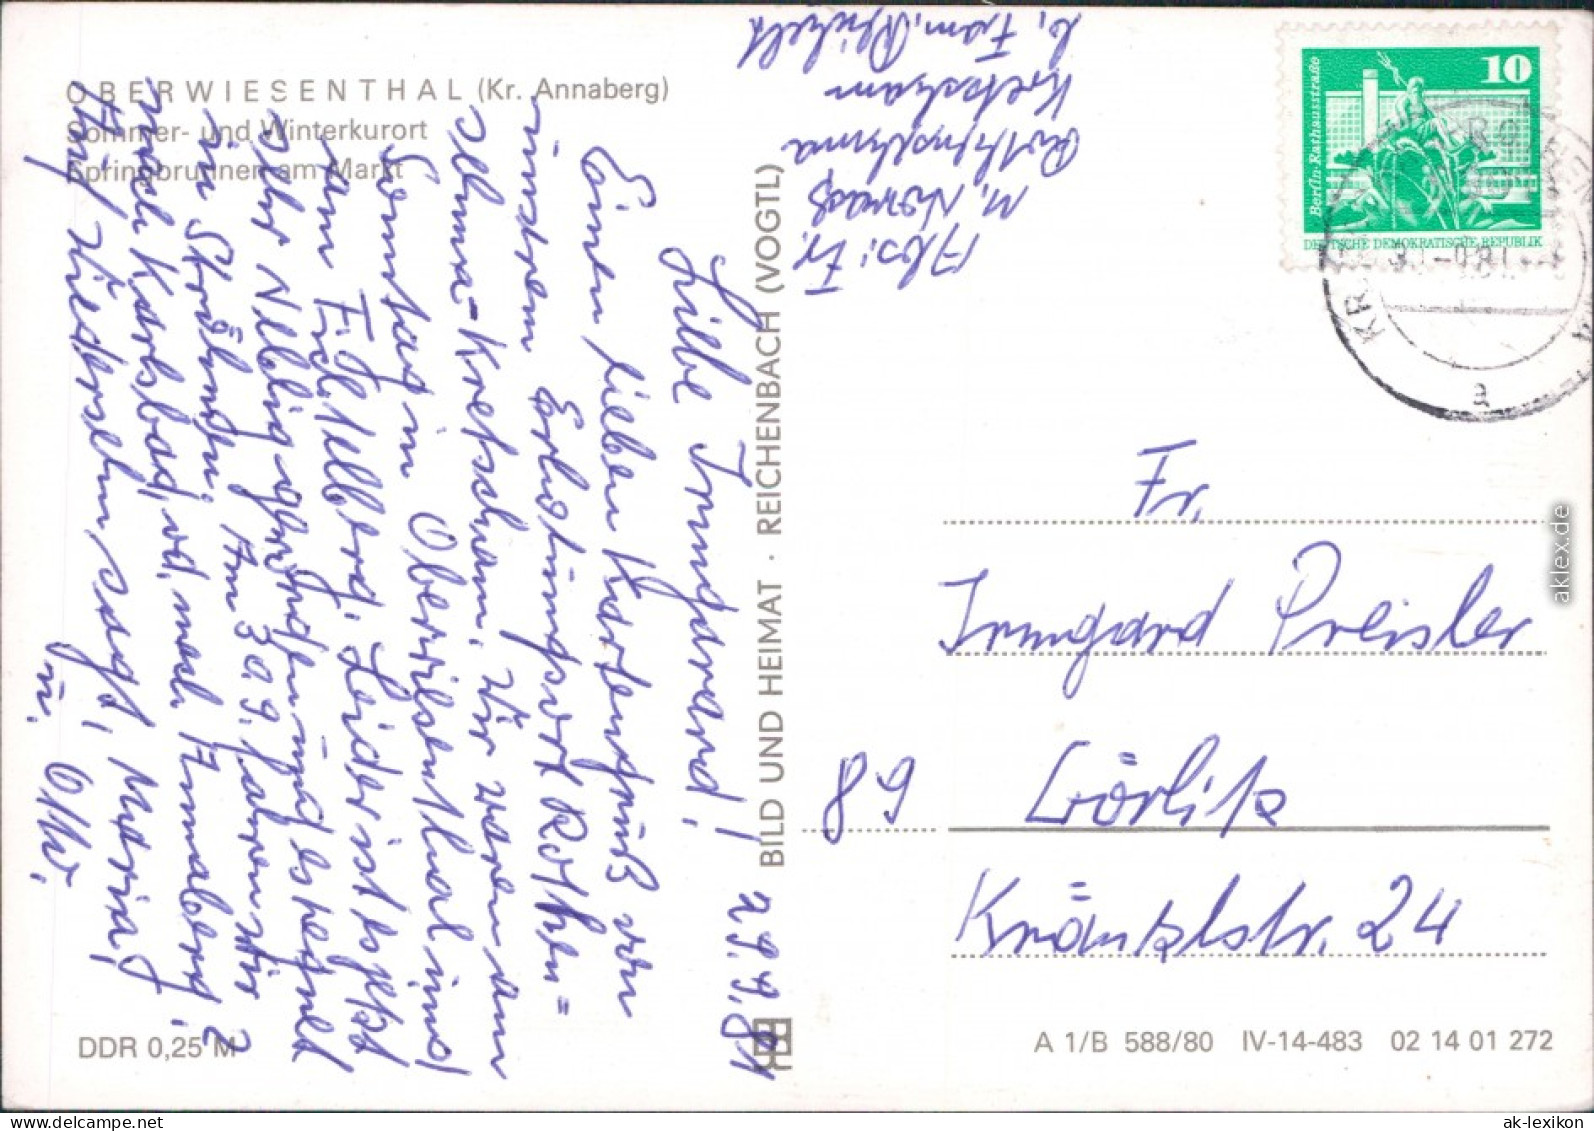 OBERWIESENTHAL (Kr. Annaberg)
Sommer- und Winterkurort
Springbrunnen am Markt
Abs: Fr.
M. Nowak
Rothenthurma
Kretscham
b. Fam. Reichelt
29.9.81
Liebe Irmgard!
Einen lieben Kartengruß von
unserem Erholungsort Rothen=
sehma-Kretscham. Wir waren am
Sonntag in Oberwiesenthal und
am Fichtelberg. Leider ist es jetzt
sehr neblig geworden und es regnet
in Strömen. Am 30.9. fahren wir
nach Karlsbad, od. nach Annaberg.
Auf Wiedersehn, sagt, Maria,
u. Otto.
BILD UND HEIMAT · REICHENBACH (VOGTL)
10
Berlin-Rathausstraße
DEUTSCHE DEMOKRATISCHE REPUBLIK
a
Fr.
Irmgard Preisler
89 Görlitz
Kränzlstr. 24
DDR 0,25 M
A 1/B 588/80 IV-14-483 02 14 01 272
aklex.de
www.delcampe.net
ak-lexikon